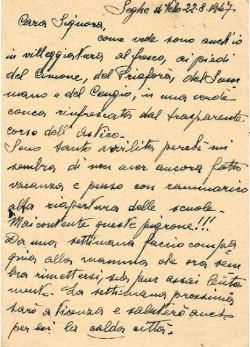 Seghe di Velo 22.8.1947.
Cara Signora,
come vede sono anch'io
in villeggiatura al fresco, ai piedi
del Cimone, del Priaforà, del Sum
mano e del Cengio, in una verde
conca rinfrescata dal trasparente
corso dell'Astico.
Sono tanto avvilita perchè mi
sembra di non aver ancora fatto
vacanza e penso con rammarico
alla riapertura delle scuole.
Mai contente queste pigrone!!!
Da una settimana faccio compa
gnia alla mamma che ora sem
bra rimettersi sia pur assai lenta
mente. La settimana prossima
sarò a Vicenza e saluterò anche
per lei la calda città.